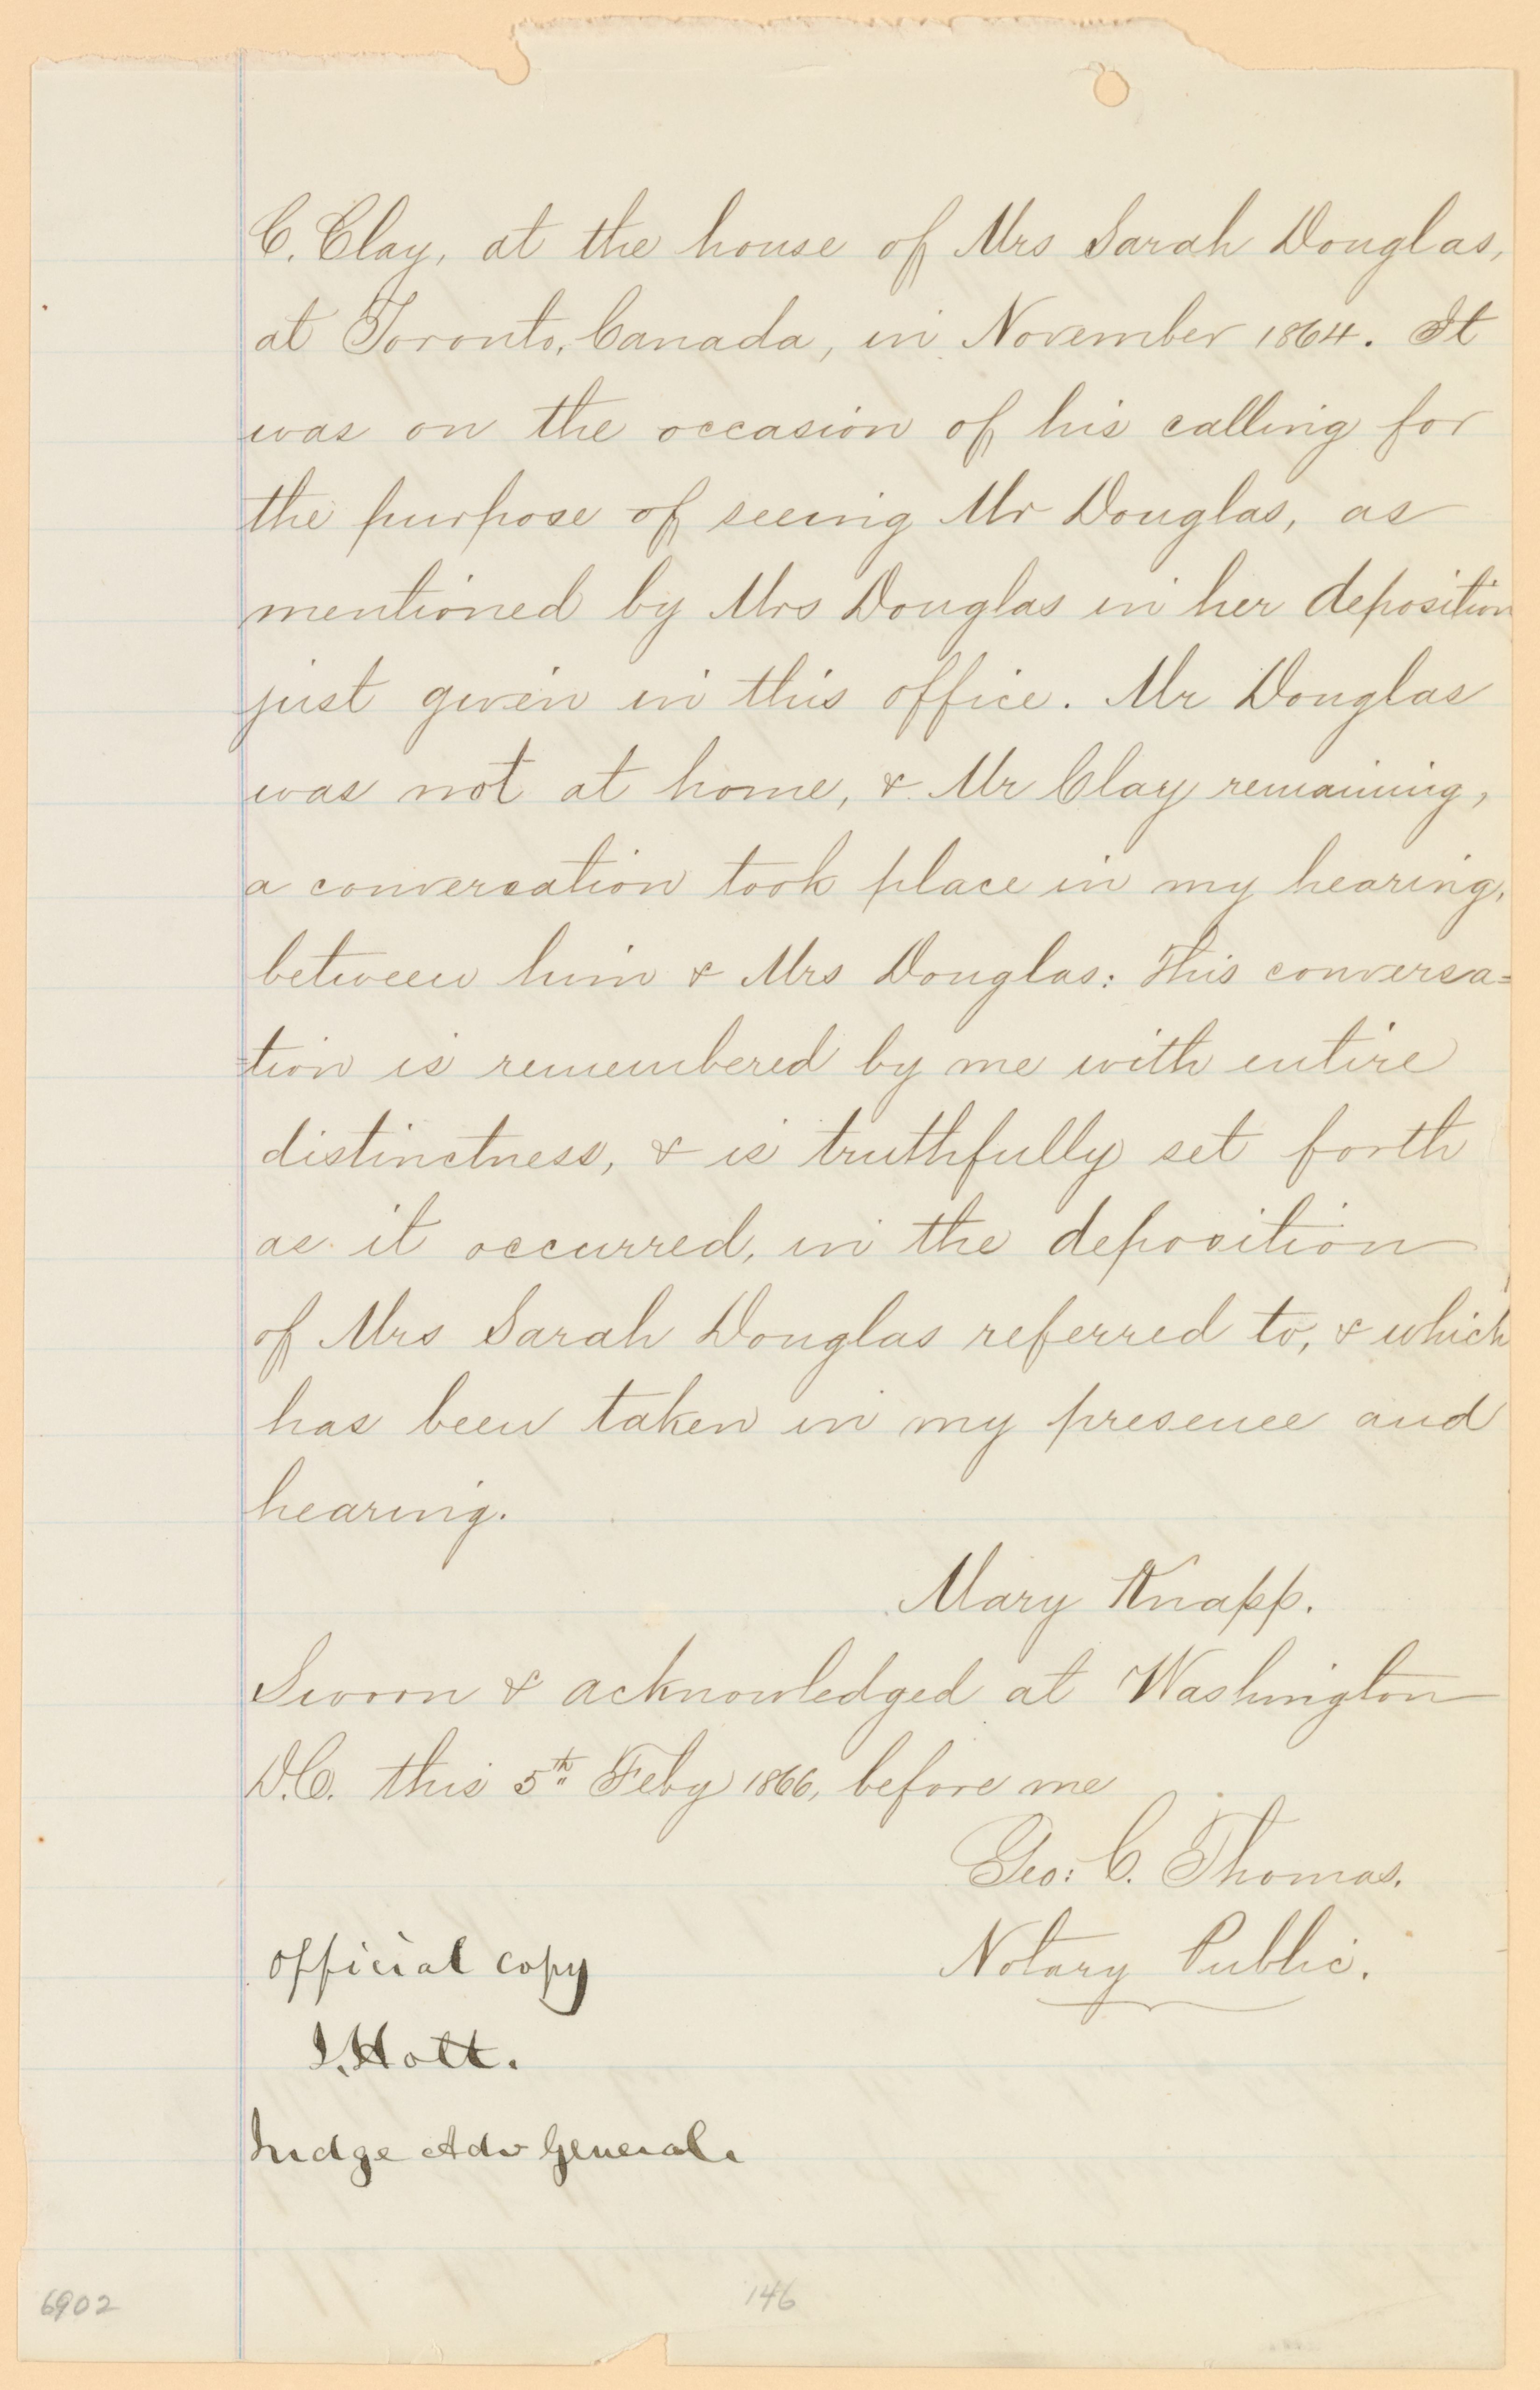 C. Clay, at the house of Mrs Sarah Douglas,
at Toronto, Canada, in November 1864. It
was on the occasion of his calling for
the purpose of seeing Mr Douglas, as
mentioned by Mrs Douglas in her deposition
just given in this office. Mr Douglas
was not at home, & Mr Clay remaining,
a conversation took place in my hearing,
between him & Mrs Douglas: This conversa=
=tion is remembered by me with entire
distinctness, & is truthfully set forth
as it occurred, in the deposition
of Mrs Sarah Douglas referred to, & which
has been taken in my presence and
hearing.
Mary Knapp.
Sworn & acknowledged at Washington
D.C. this 5th Feby 1866, before me
Geo: C. Thomas.
Notary Public.
Official copy
J. Holt.
Judge Adv General.
6902
146